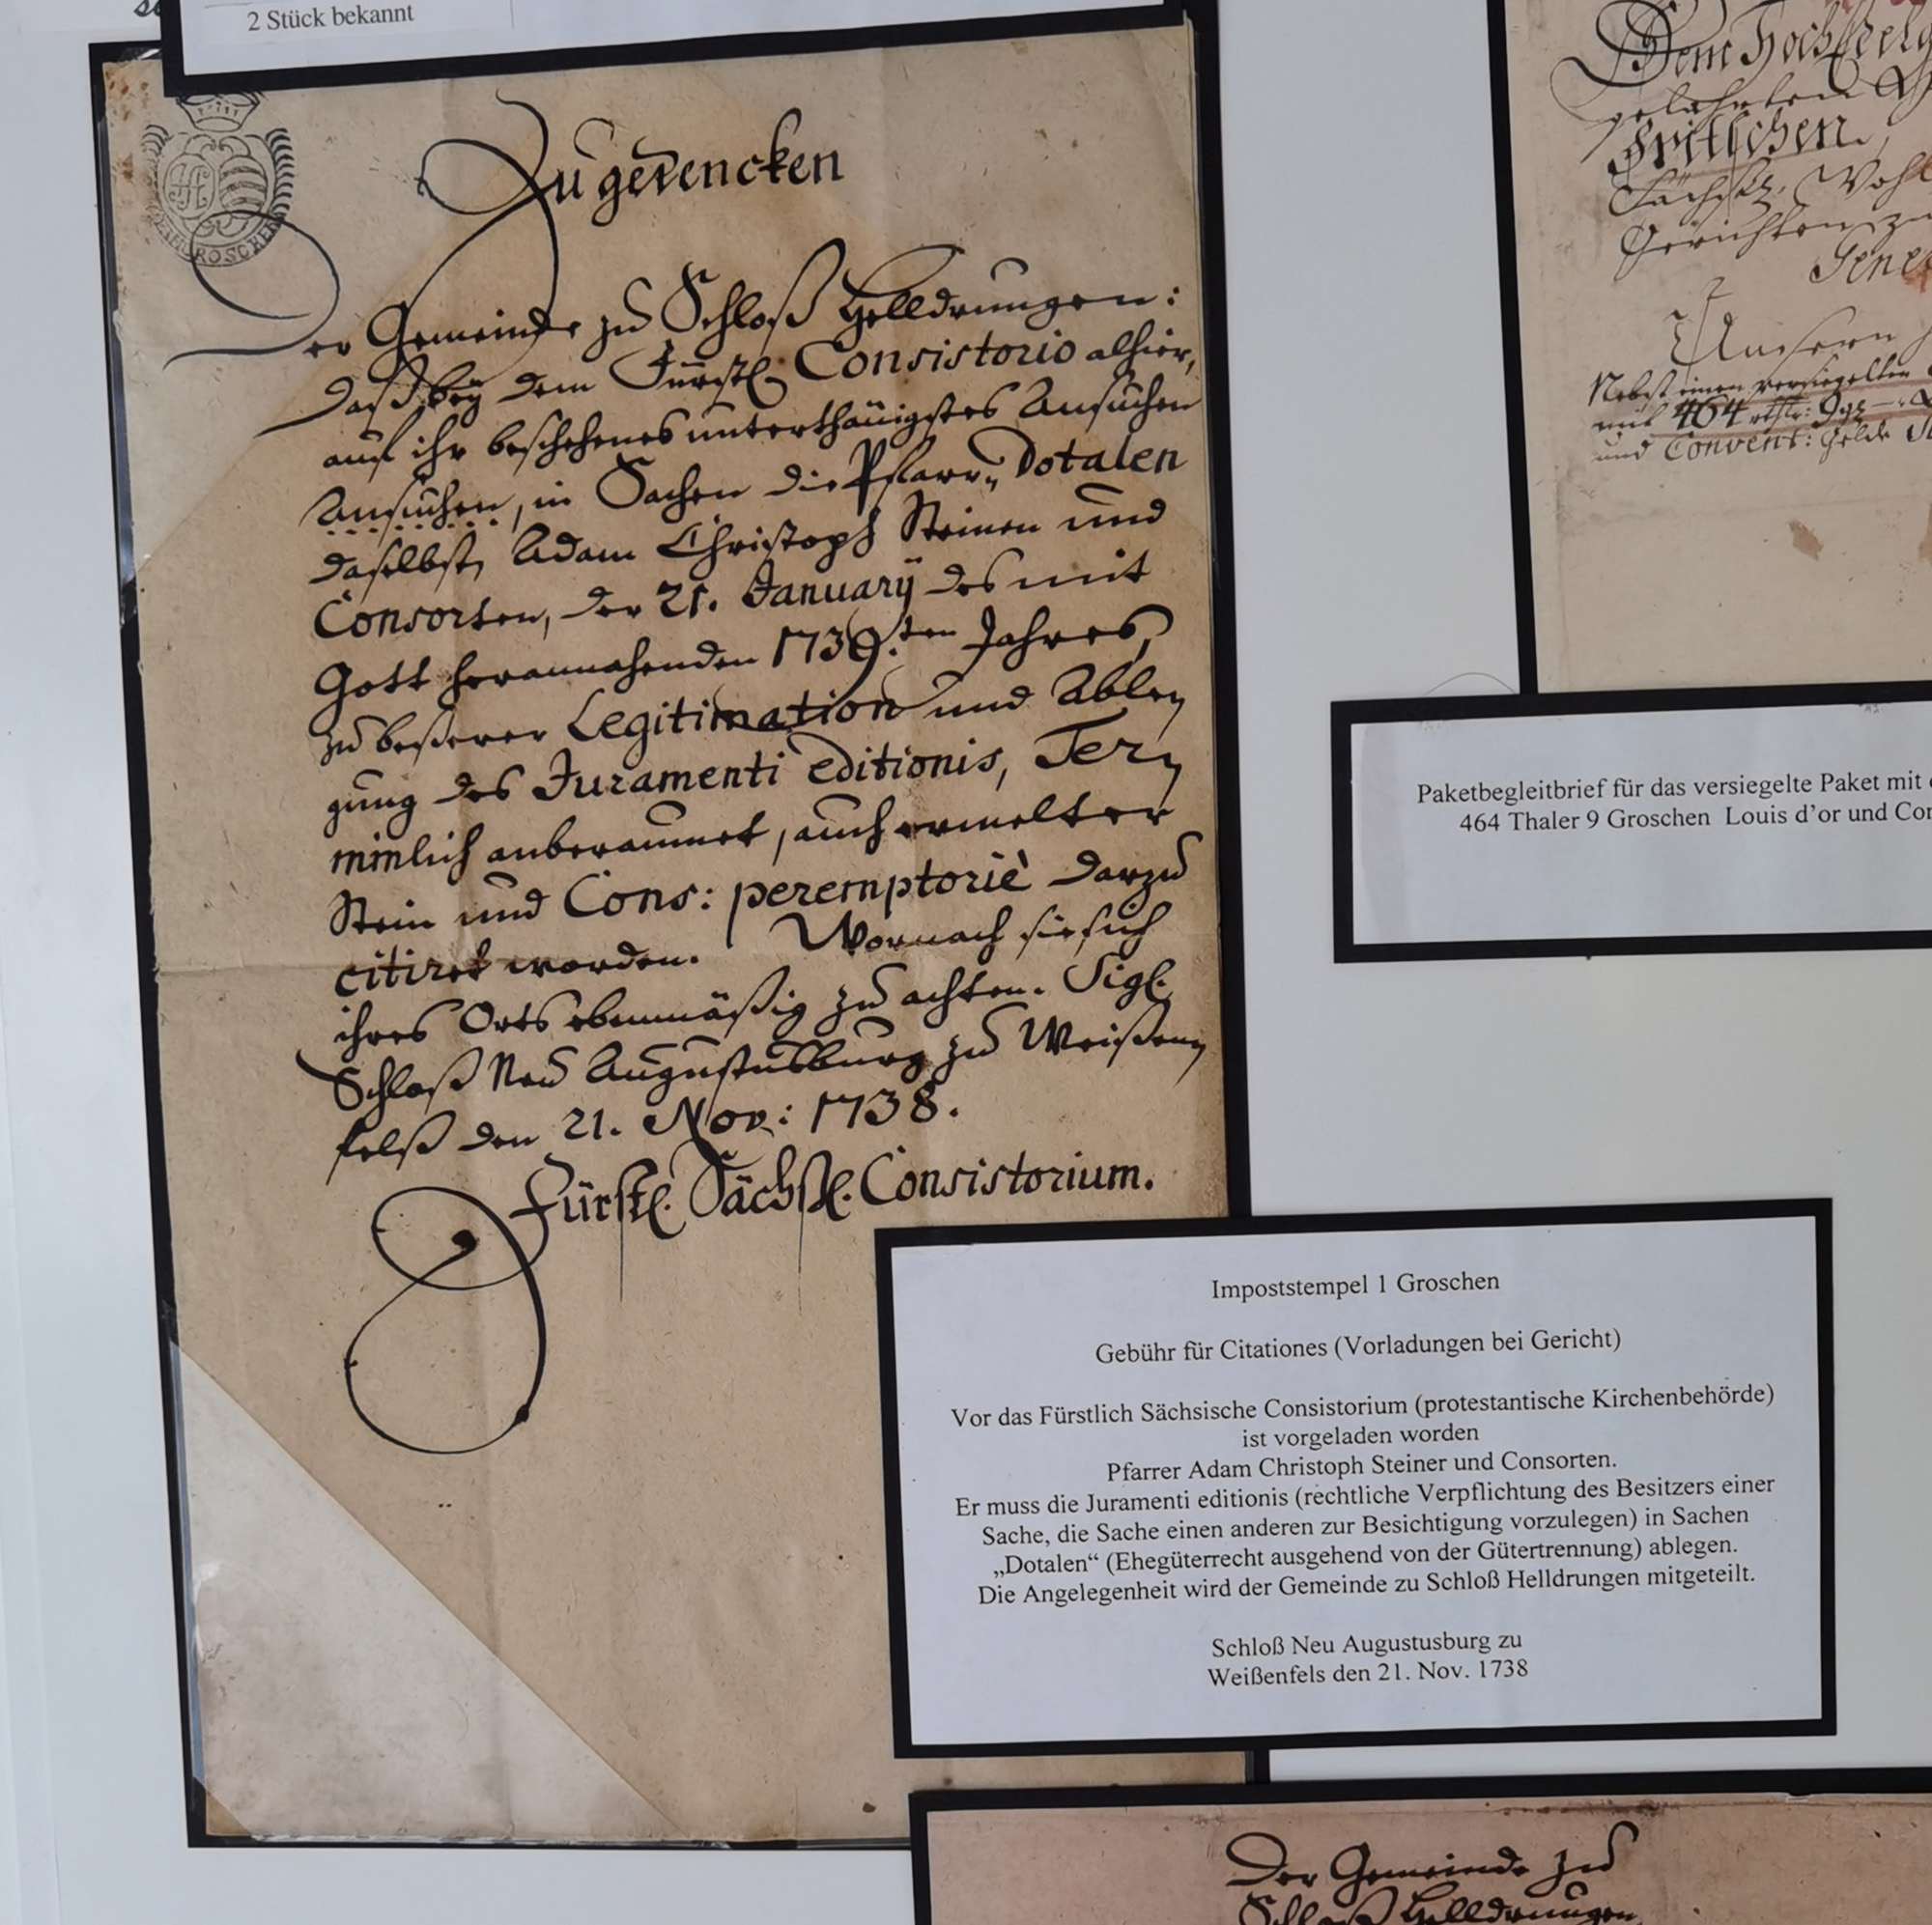 2 Stück bekannt
GROSCHEN
Zugedencken
Der Gemeinde zu Schloß Helldrungen:
daß bey dem Fürstl. Consistorio alhier,
auf ihr beschehenes unterthänigstes Ansuchen
Ansuchen, in Sachen die Pfarr- Dotalen
daselbst, Adam Christoph Steinen und
Consorten, der 21. January des mit
Gott herannahenden 1739.ten Jahres,
zu beßerer Legitimation und Able-
gung des Juramenti editionis, Ter-
minlich anberaumet, auch ermelter
Stein und Cons: peremptoriè darzu
citiret worden. Wornach sie sich
ihres Orts ebenmäßig zu achten. Sigl.
Schloß Neu Augustusburg zu Weißen-
felß den 21. Nov: 1738.
Fürstl. Sächßl. Consistorium.
Dem Hoch
Sächß. Wohl
Gerichten zu
Unsern
Nebst einen versiegelten
mit 464 rthlr: 9 gr
und Convent: Gelde
Paketbegleitbrief für das versiegelte Paket mit
464 Thaler 9 Groschen Louis d’or und Con
Impoststempel 1 Groschen
Gebühr für Citationes (Vorladungen bei Gericht)
Vor das Fürstlich Sächsische Consistorium (protestantische Kirchenbehörde)
ist vorgeladen worden
Pfarrer Adam Christoph Steiner und Consorten.
Er muss die Juramenti editionis (rechtliche Verpflichtung des Besitzers einer
Sache, die Sache einen anderen zur Besichtigung vorzulegen) in Sachen
„Dotalen“ (Ehegüterrecht ausgehend von der Gütertrennung) ablegen.
Die Angelegenheit wird der Gemeinde zu Schloß Helldrungen mitgeteilt.
Schloß Neu Augustusburg zu
Weißenfels den 21. Nov. 1738
Der Gemeinde zu
Schloß Helldrungen